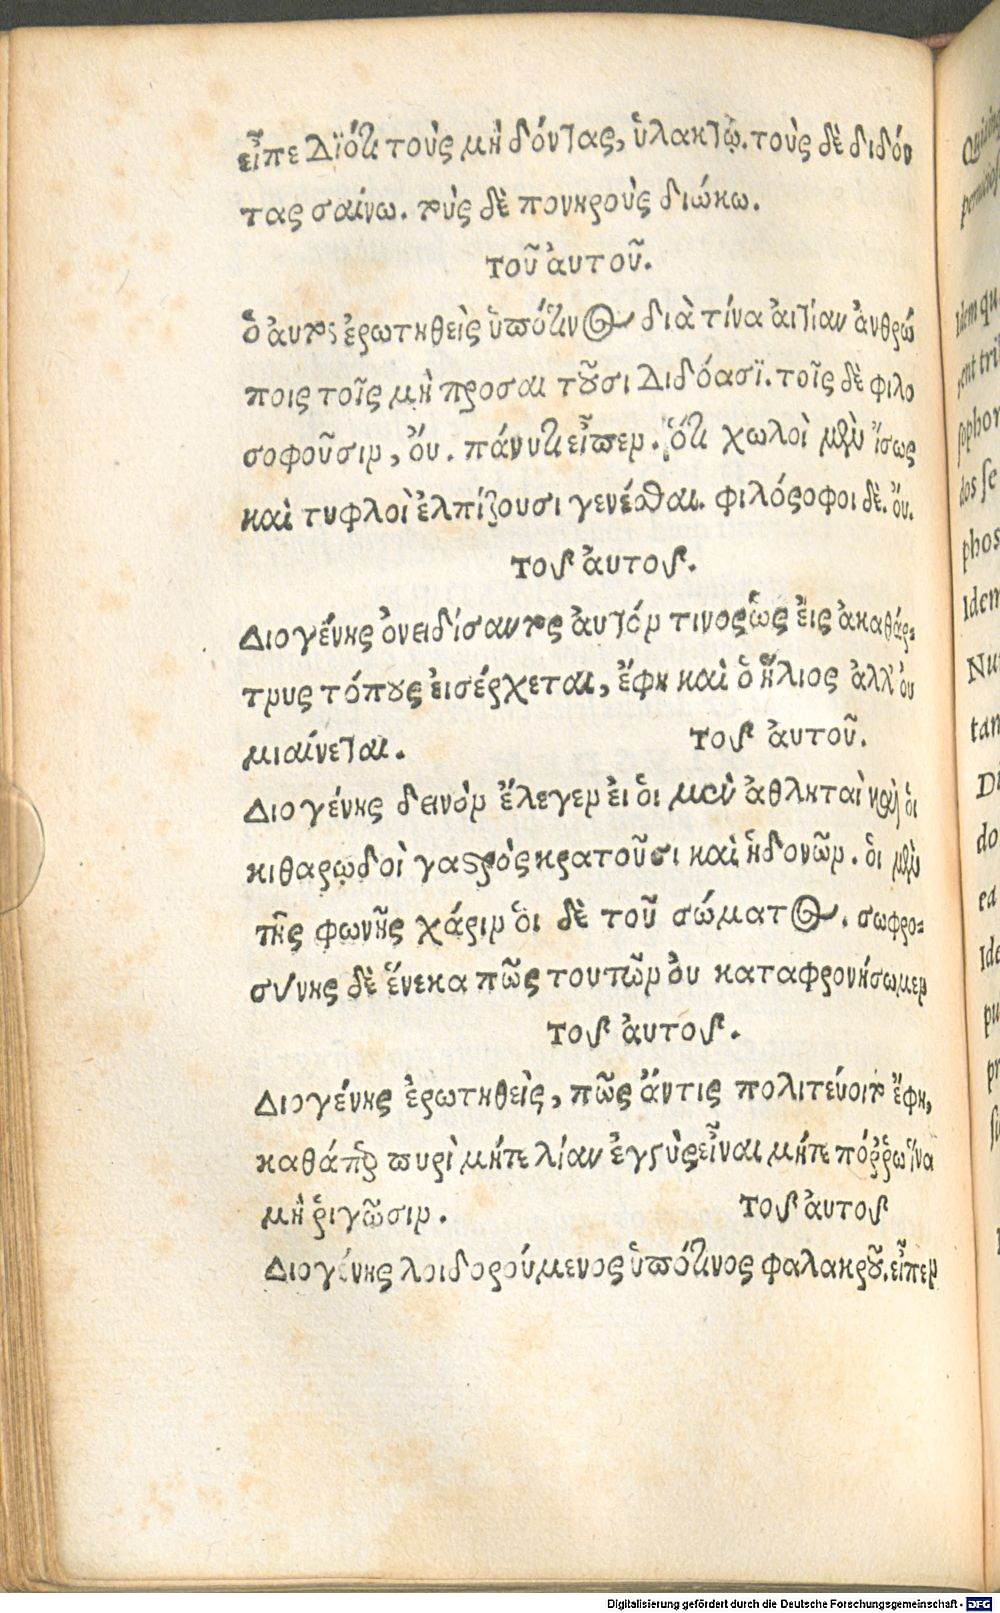 εἶπε Διότι τοὺς μὴ δόντας, ὑλακτῶ. τοὺς δὲ διδόν
τας σαίνω. τοὺς δὲ πονηροὺς διώκω.
τοῦ ἀυτοῦ.
ὁ ἀυτὸς ἐρωτηθεὶς ὑπότινος διὰ τίνα ἀιτίαν ἀνθρώ
ποις τοῖς μὴ προσαι τοῦσι Διδόασϊ. τοῖς δὲ φιλο
σοφοῦσιν, ὀυ. πάνυτι εἶπεν. ὅτι χωλοὶ μὲν ἴσως
καὶ τυφλοὶ ἐλπίζουσι γενέσθαι. φιλόσοφοι δὲ. ὄυ.
τοῦ ἀυτοῦ.
Διογένης ὀνειδίσαντος ἀυτόν τινος ὡς ἐις ἀκαθάρ-
τους τόπους ἐισέρχεται, ἔφη καὶ ὁ ἥλιος ἀλλ' ὀυ
μιαίνεται. τοῦ ἀυτοῦ.
Διογένης δεινὸν ἔλεγεν ἐι ὁι μὲν ἀθληταὶ καὶ ὁι
κιθαρῳδοὶ γαστρὸς κρατοῦσι καὶ ἡδονῶν. ὁι μὲν
τῆς φωνῆς χάριν ὁι δὲ τοῦ σώματος. σωφρο-
σύνης δὲ ἕνεκα πῶς τουτῶν ὀυ καταφρονήσωμεν
τοῦ ἀυτοῦ.
Διογένης ἐρωτηθεὶς, πῶς ἄντις πολιτεύοιτο ἔφη,
καθάπερ πυρὶ μήτε λίαν ἐγγὺς εἶναι μήτε πόῤῥω ἵνα
μὴ ῥιγῶσιν. τοῦ ἀυτοῦ
Διογένης λοιδορούμενος ὑπότινος φαλακροῦ. εἶπεν
Digitalisierung gefördert durch die Deutsche Forschungsgemeinschaft - DFG